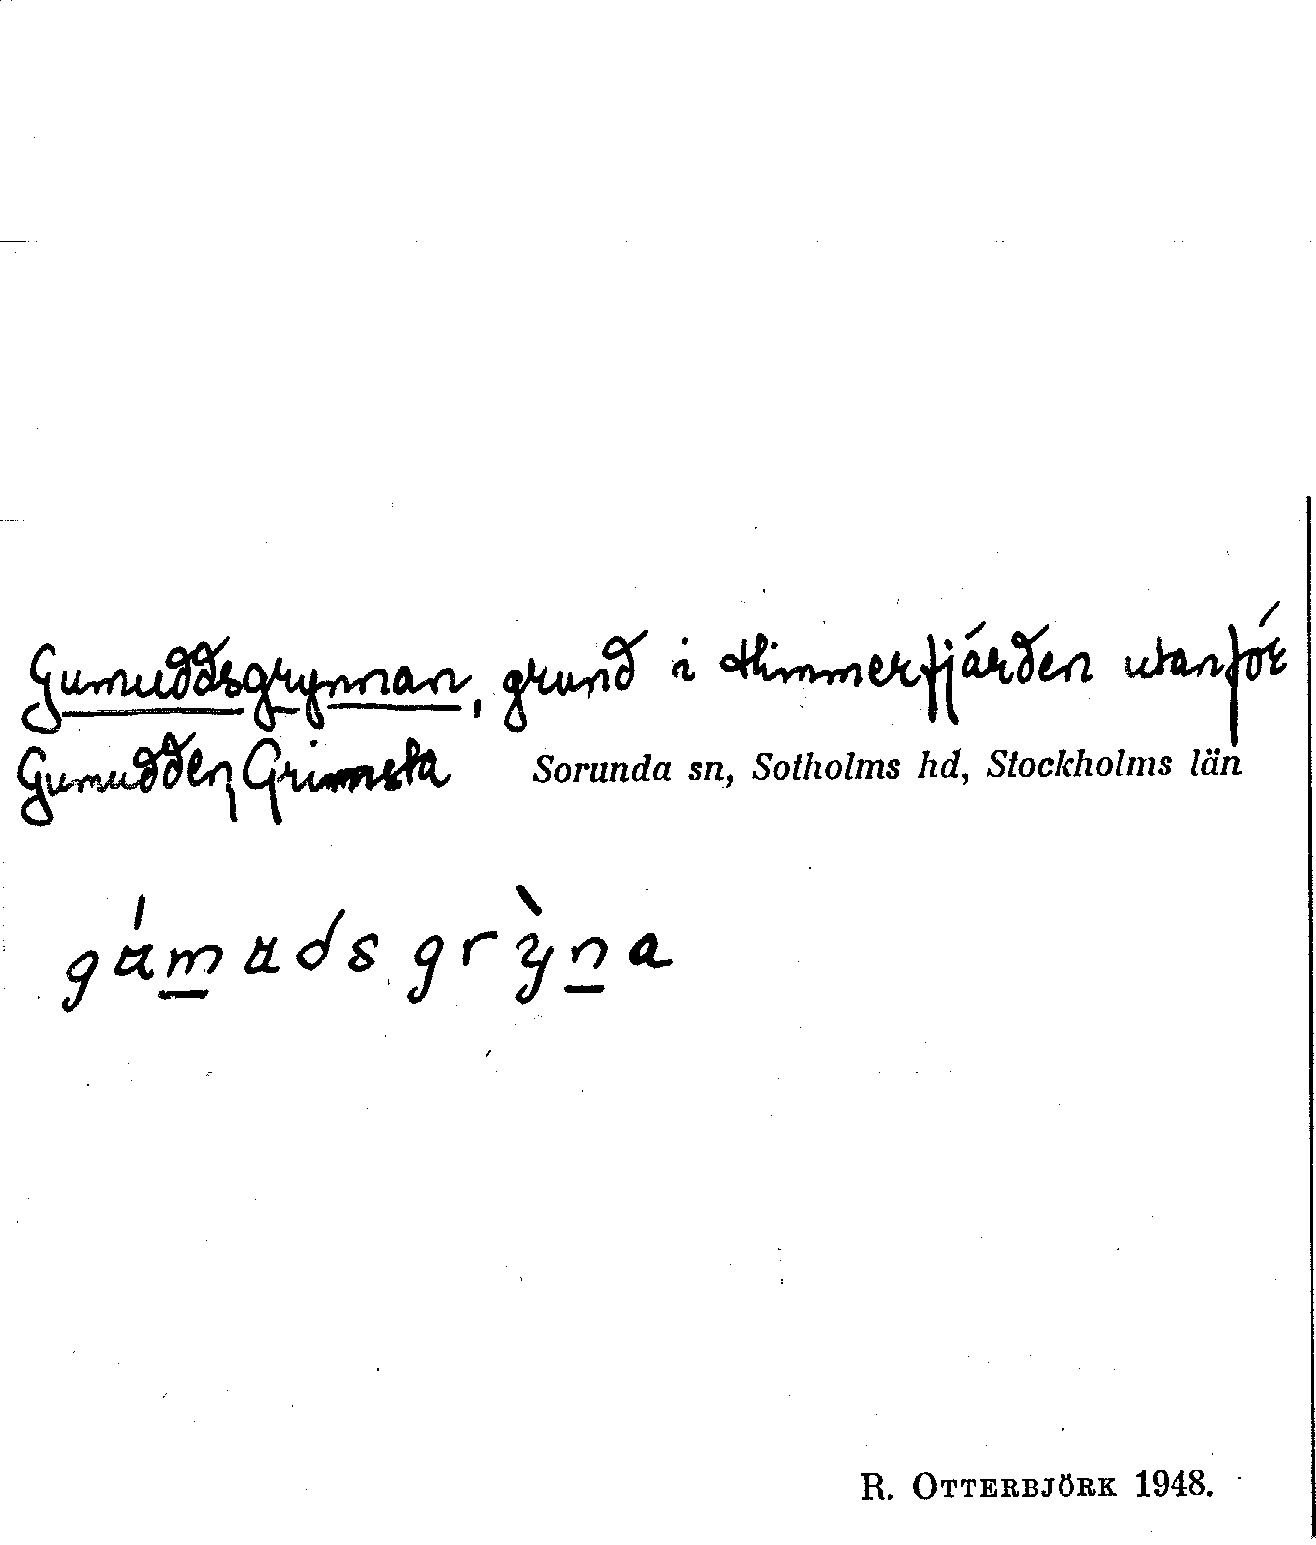 Gumuddsgrynnan, grund i Himmerfjärden utanför
Gumudden, Grimsta Sorunda sn, Sotholms hd, Stockholms län
gúmuds grỳna
R. OTTERBJÖRK 1948.